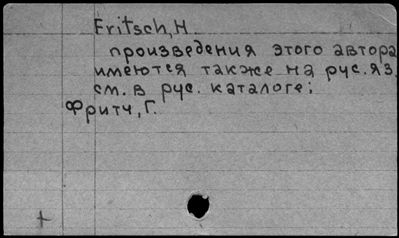 Fritsch, H.
произведения этого автора
имеются также на рус. яз.
см. в рус. каталоге:
Фритч, Г.